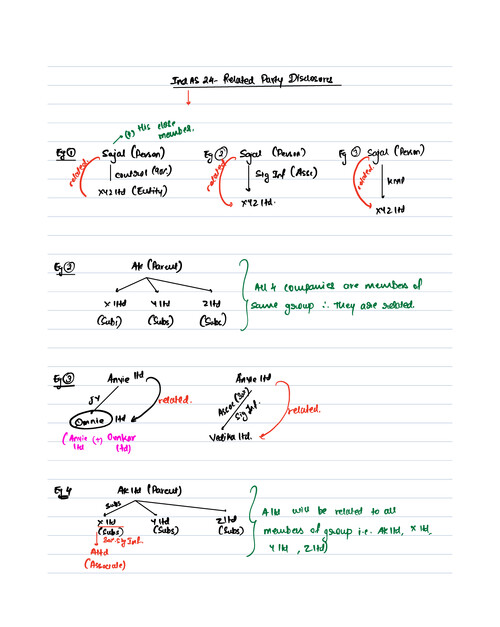 Ind AS 24- Related Party Disclosures
(or) His close
member.
Eg ① Sajal (Person) Eg ② Sajal (Person) Eg ③ Sajal (Person)
related control (Sub.) related Sig Inf (Asso) related kmp
XYZ ltd (Entity) XYZ ltd. XYZ ltd
Eg ② AK (Parent)
X ltd Y ltd Z ltd
(Subs) (Subs) (Subs)
All 4 companies are members of
same group ∴ They are related.
Eg ③ Anvie ltd Anvie ltd
JV related. Assoc Sig Inf. related.
Omnie ltd Vatika ltd.
(Anvie (+) Omkar
ltd ltd)
Eg 4 AK ltd (Parent)
Subs
X ltd Y ltd Z ltd
(Subs) (Subs) (Subs)
Sig Inf.
A ltd
(Associate)
A ltd will be related to all
members of group i.e. AK ltd, X ltd,
Y ltd, Z ltd)